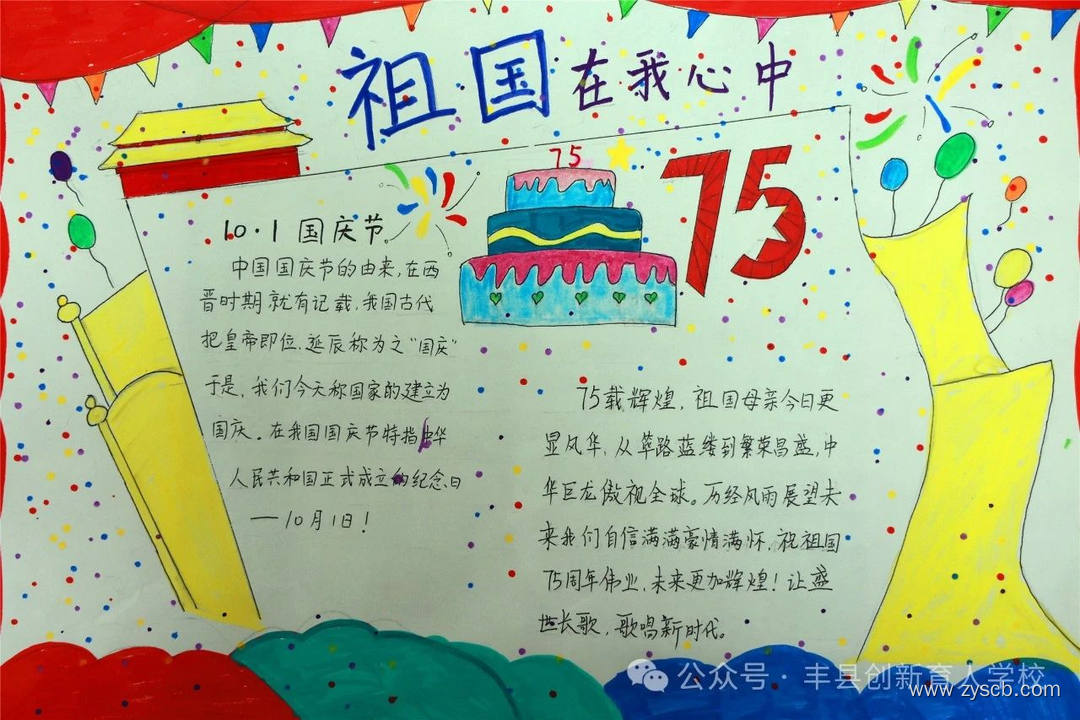 祖国在我心中
75
75
10·1 国庆节
中国国庆节的由来,在西
晋时期,就有记载,我国古代
把皇帝即位、延辰称为之"国庆"
于是,我们今天称国家的建立为
国庆。在我国国庆节特指中华
人民共和国正式成立的纪念日
—10月1日!
75载辉煌,祖国母亲今日更
显风华,从筚路蓝缕到繁荣昌盛,中
华巨龙傲视全球。历经风雨展望未
来我们自信满满豪情满怀,祝祖国
75周年伟业,未来更加辉煌!让盛
世长歌,歌唱新时代。
公众号·丰县创新育人学校
www.zyscb.com